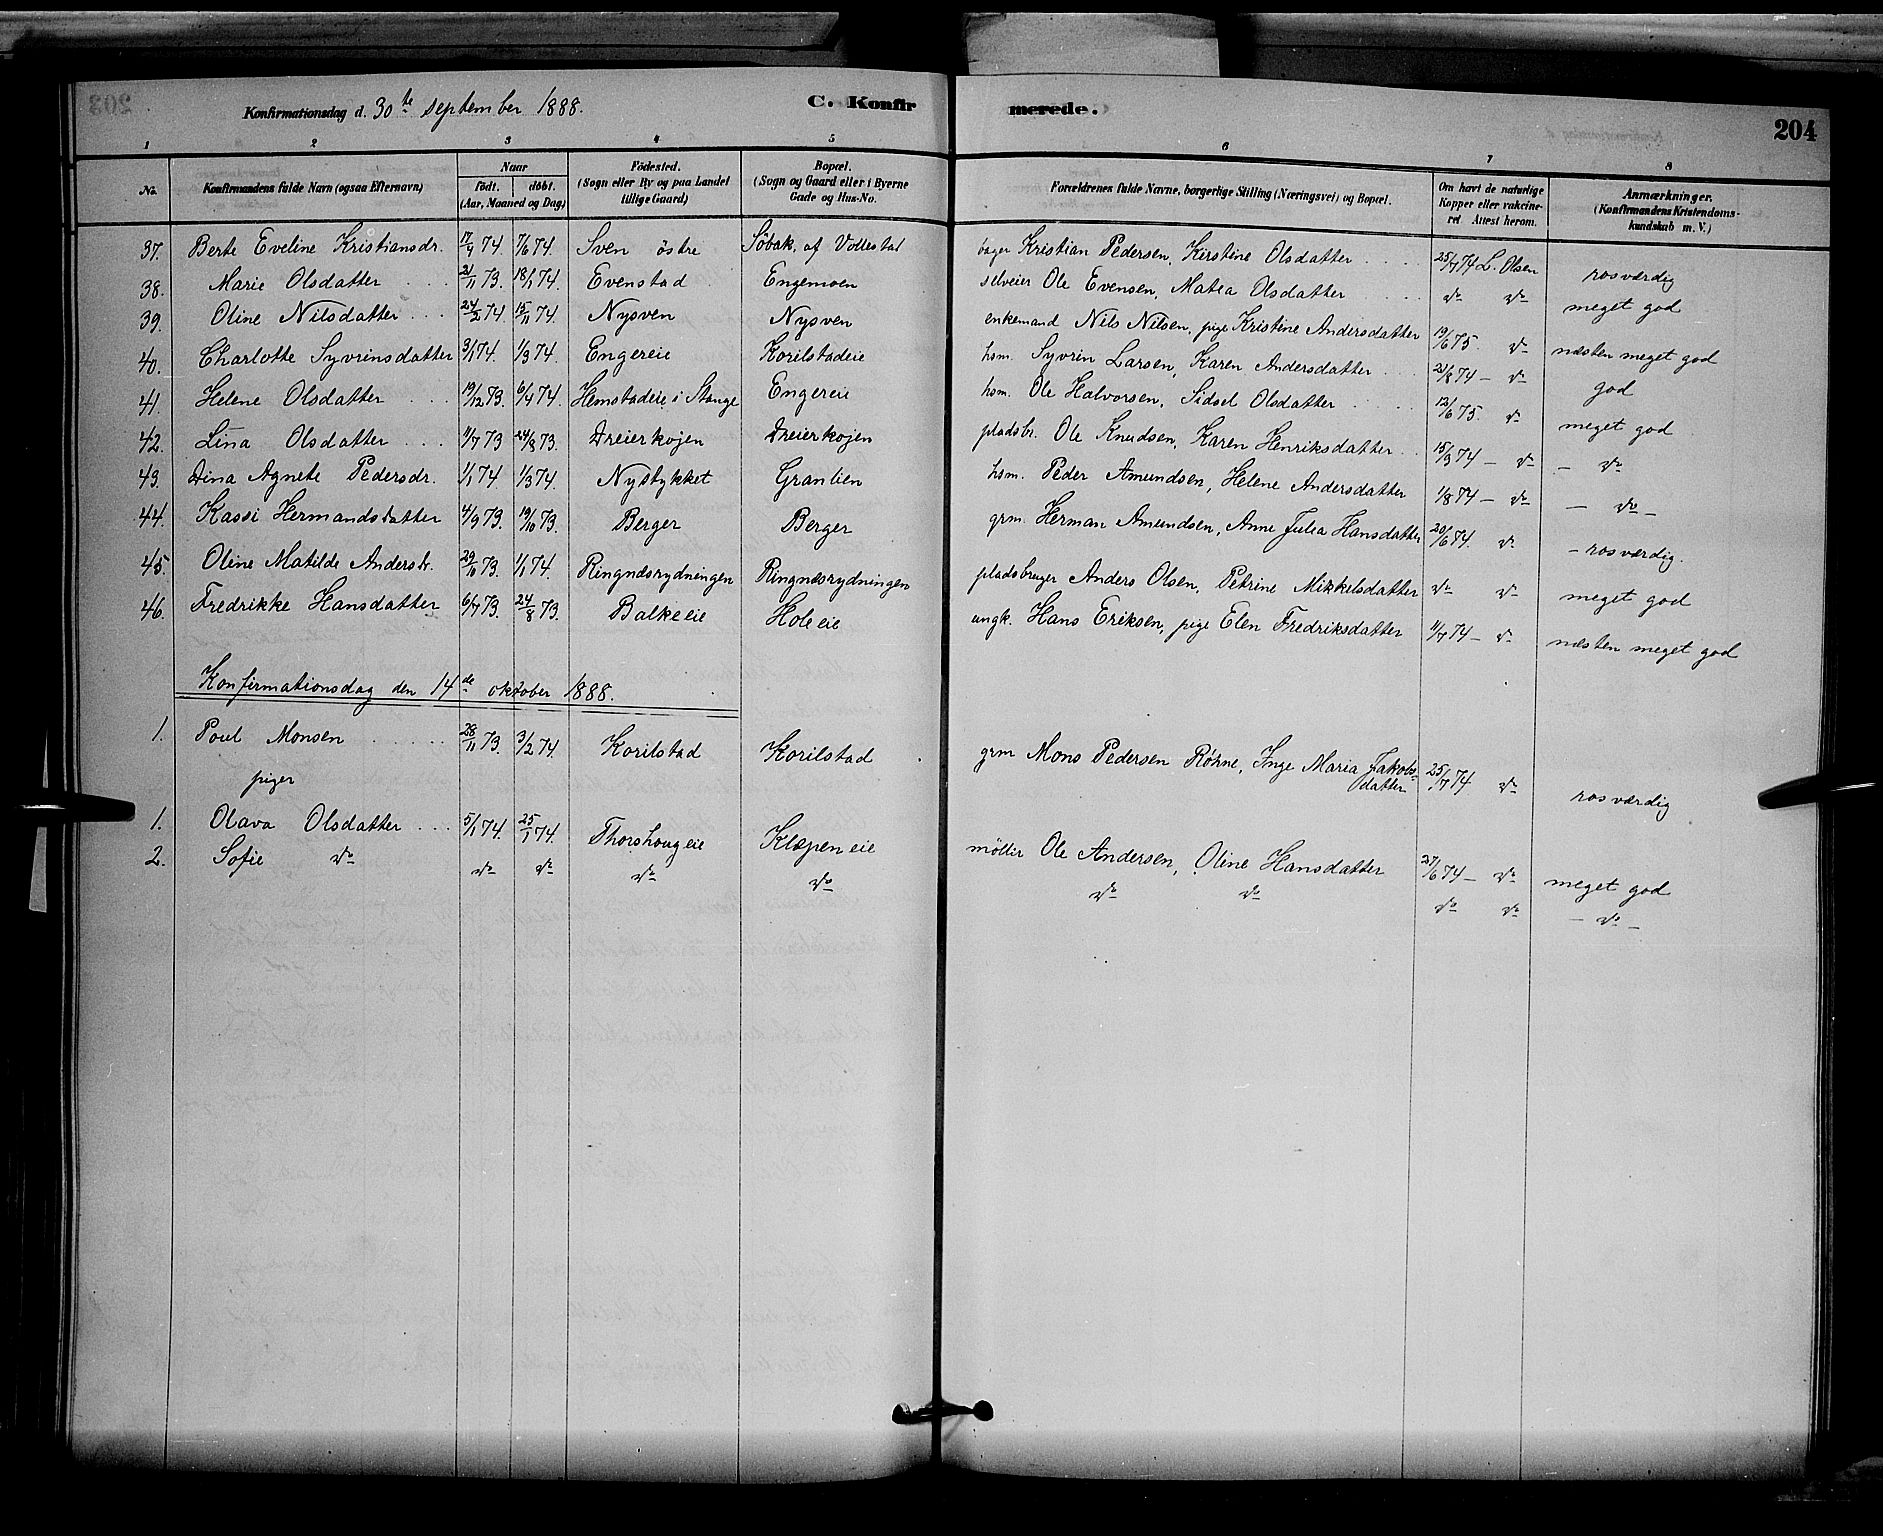 Konfirmationsdag d. 30te september 1888. C. Konfir merede. 204
1 2 3 4 5 6 7 8
No. Konfirmandens fulde Navn (ogsaa Efternavn) Naar født. døbt. (Aar, Maaned og Dag) Fødested. (Sogn eller By og paa Landet tillige Gaard) Bopæl. (Sogn og Gaard eller i Byerne Gade og Hus-No. Forældrenes fulde Navne, borgerlige Stilling (Næringsvei) og Bopæl. Om havt de naturlige Kopper eller vakcineret Attest herom. Anmærkninger. (Konfirmandens Kristendomskundskab m. V.)
37. Berte Eveline Kristiansdr. 17/4 74. 7/6 74. Sven östre Söbak. af Vollestad bager Kristian Pedersen, Kirstine Olsdatter 25/7 74 L. Olsen rosværdig
38. Marie Olsdatter 21/11 73. 18/1 74. Evenstad Engemoen selveier Ole Evensen, Matea Olsdatter do do meget god
39. Oline Nilsdatter 24/2 74. 15/11 74. Nysven Nysven enkemand Nils Nilsen, pige Kristine Andersdatter 19/6 75 do næsten meget god
40. Charlotte Syvrinsdatter 3/1 74. 1/3 74. Engereie Korilstadeie hsm. Syvrin Larsen, Karen Andersdatter 21/8 74 - do god
41. Helene Olsdatter 19/12 73. 6/4 74. Hemstadeie i Stange Engereie hsm. Ole Halvorsen, Sidsel Olsdatter 12/6 75. do meget god
42. Lina Olsdatter 11/7 73 24/8 73. Dreierkojen Dreierkojen pladsbr. Ole Knudsen, Karen Henriksdatter 15/3 74 - do - do
43. Dina Agnete Pedersdr. 1/1 74. 1/3 74. Nystykket Granlien hsm. Peder Amundsen, Helene Andersdatter 1/8 74 - do - do -
44. Kassi Hermandsdatter 4/9 73. 19/10 73. Berger Berger grm. Herman Amundsen, Anne Julea Hansdatter 20/6 74. do - rosværdig.
45. Oline Matilde Andersdr. 29/10 73. 1/1 74. Ringnæsrydningen Ringnæsrydningen pladsbruger Anders Olsen, Petrine Mikkelsdatter do do meget god
46. Fredrikke Hansdatter 6/7 73. 24/8 73. Balkeeie Holeeie ungk. Hans Eriksen, pige Elen Fredriksdatter 11/7 74 - do næsten meget god
Konfirmationsdag den 14de oktober 1888.
1. Poul Monsen 28/11 73. 3/2 74. Korilstad Korilstad grm Mons Pedersen Røhne, Inge Maria Jakobsdatter 25/7 74 do rosværdig
piger
1. Olava Olsdatter 5/1 74. 25/1 74. Thorshougeie Klæpeneie möller Ole Andersen, Oline Hansdatter 27/6 74 - do meget god
2. Sofie do do do do do do do do do - do -